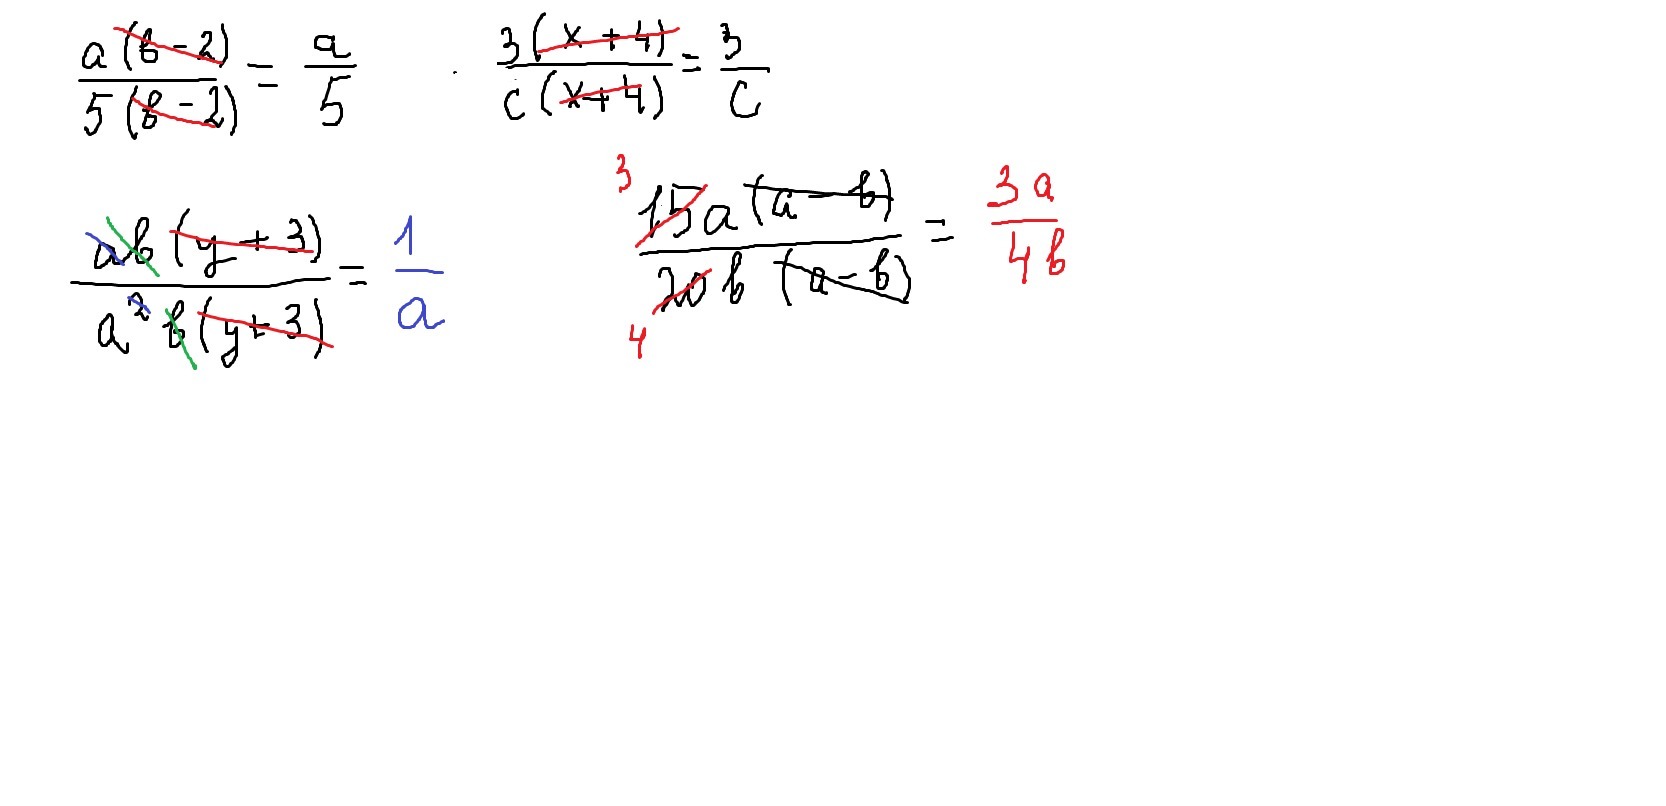 a(b-2)/5(b-2) = a/5 . 3(x+4)/c(x+4) = 3/c
ab(y+3)/a²b(y+3) = 1/a
3 15a(a-b)/20b(a-b) 4 = 3a/4b